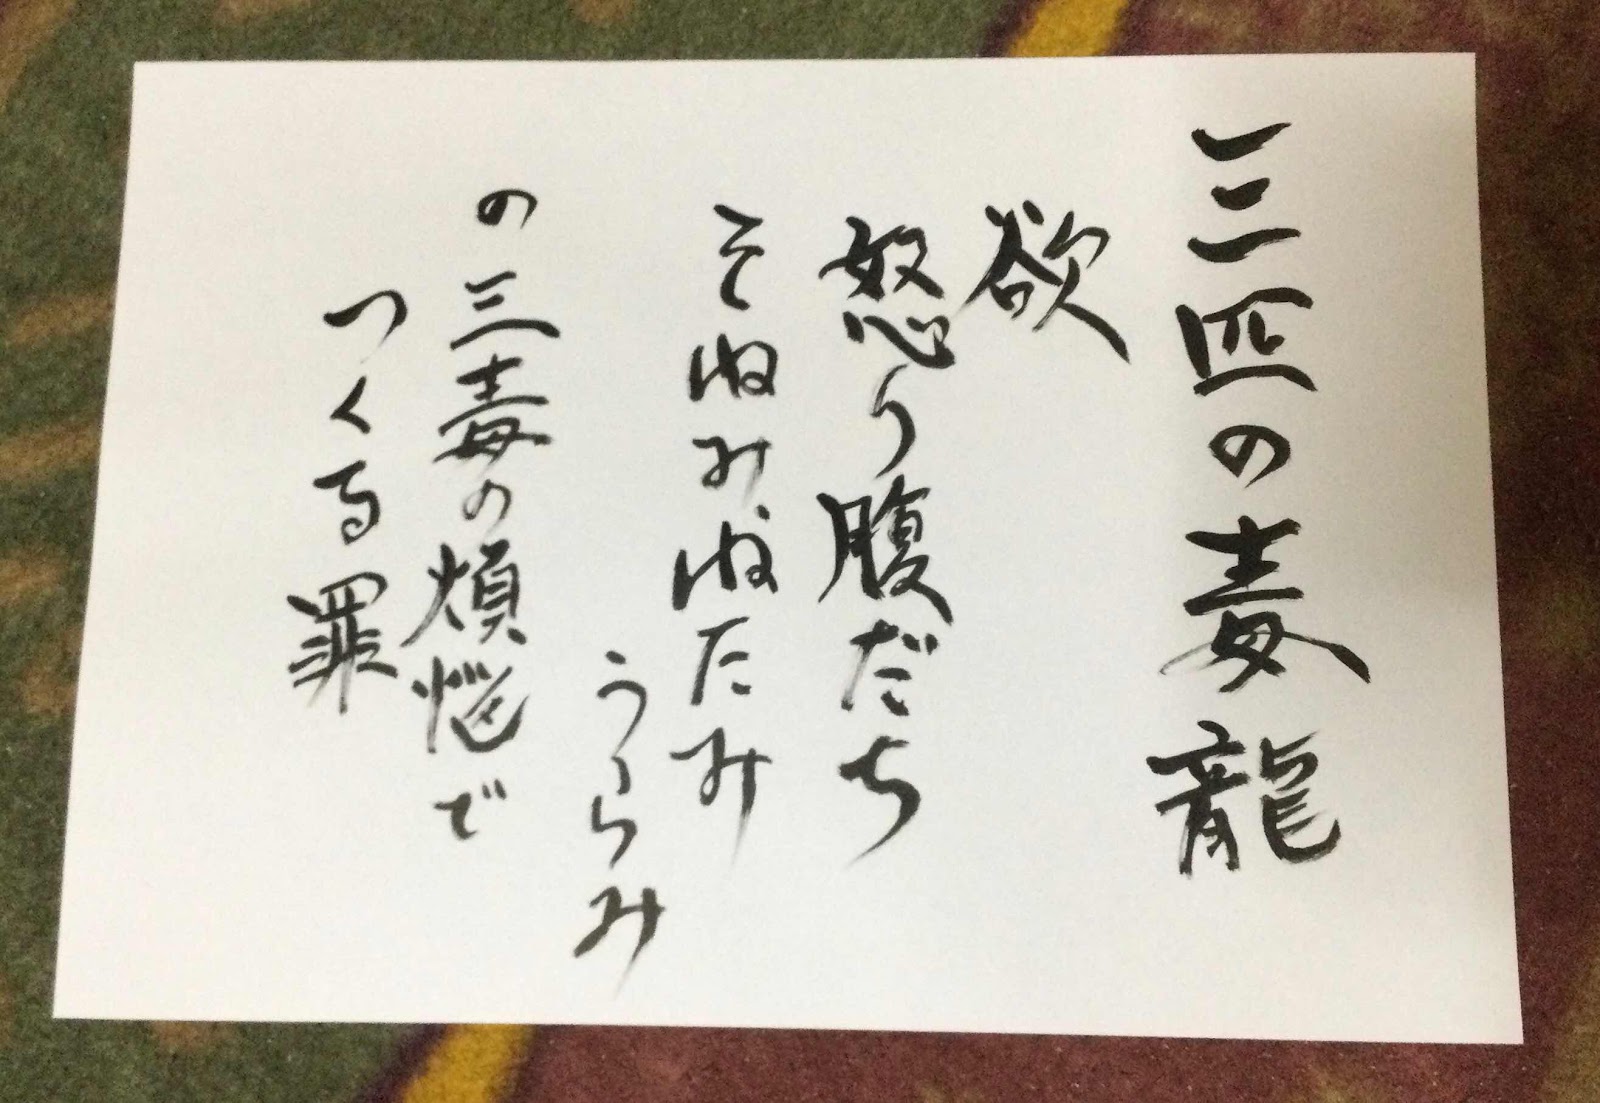 三匹の毒龍
欲
怒り腹だち
そねみねたみ
うらみ
の三毒の煩悩で
つくる罪